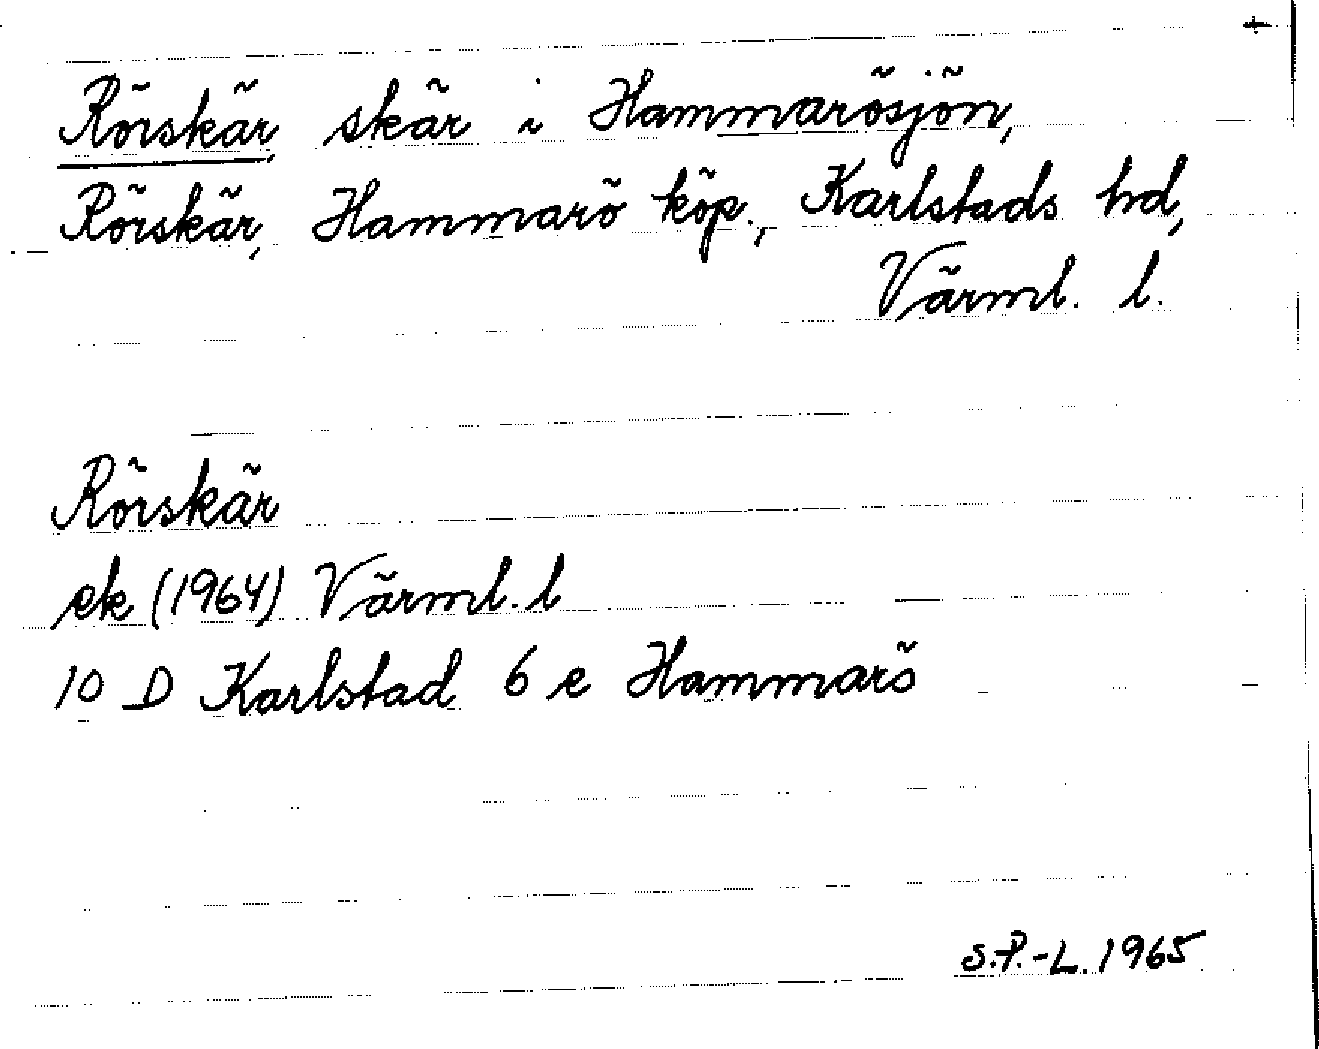 Rörskär, skär i Hammarösjön,
Rörskär, Hammarö köp., Karlstads hd,
Värml. l.
Rörskär
ek (1964) Värml. l
10 D Karlstad 6 e Hammarö
S.P.-L. 1965